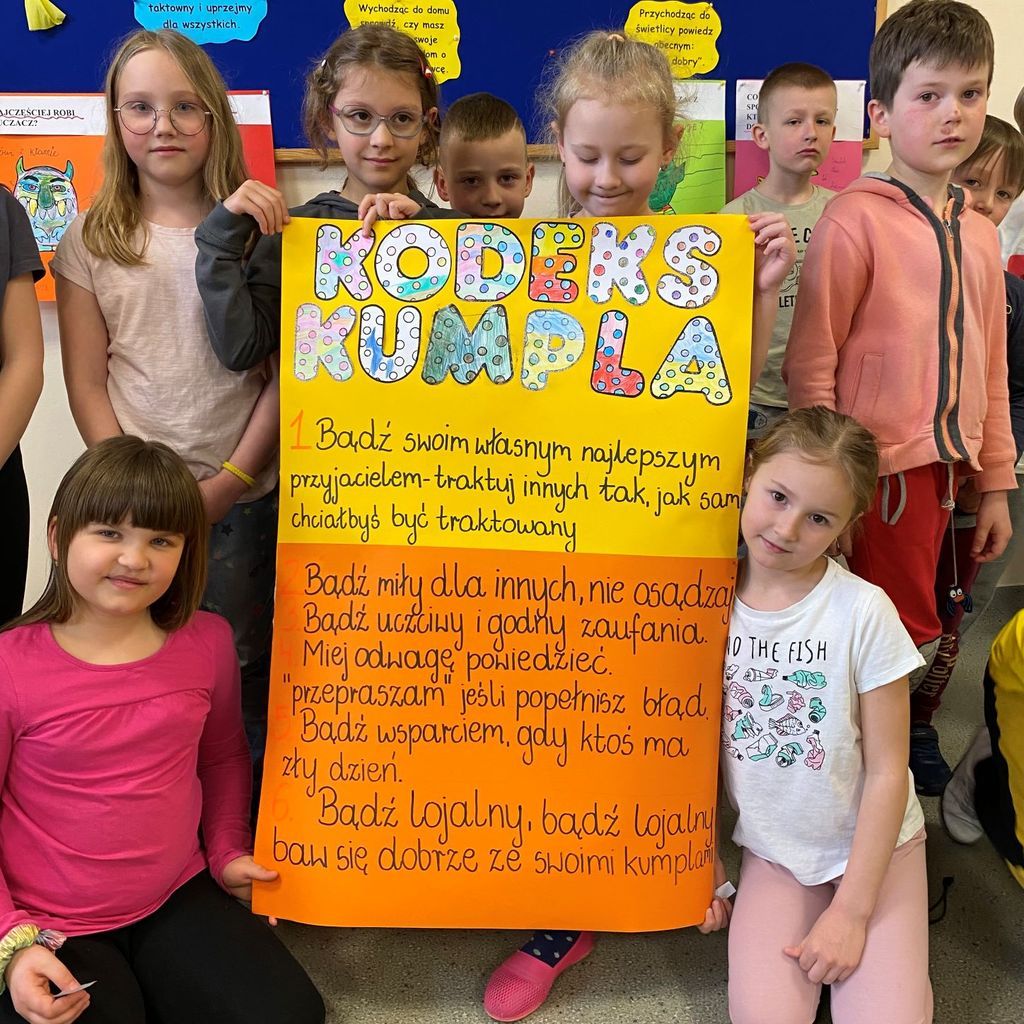 taktowny i uprzejmy
dla wszystkich.
Wychodząc do domu
sprawdź, czy masz
swoje
Przychodząc do
świetlicy powiedz
obecnym:
dobry".
NAJCZĘŚCIEJ ROBI
KODEKS
KUMPLA
1 Bądź swoim własnym najlepszym
przyjacielem-traktuj innych tak, jak sam
chciałbyś być traktowany
2. Bądź miły dla innych, nie osądzaj
3. Bądź uczciwy i godny zaufania.
4. Miej odwagę powiedzieć.
"przepraszam" jeśli popełnisz błąd.
5 Bądź wsparciem, gdy ktoś ma
zły dzień.
6. Bądź lojalny, bądź lojalny
baw się dobrze ze swoimi kumplami
THE FISH